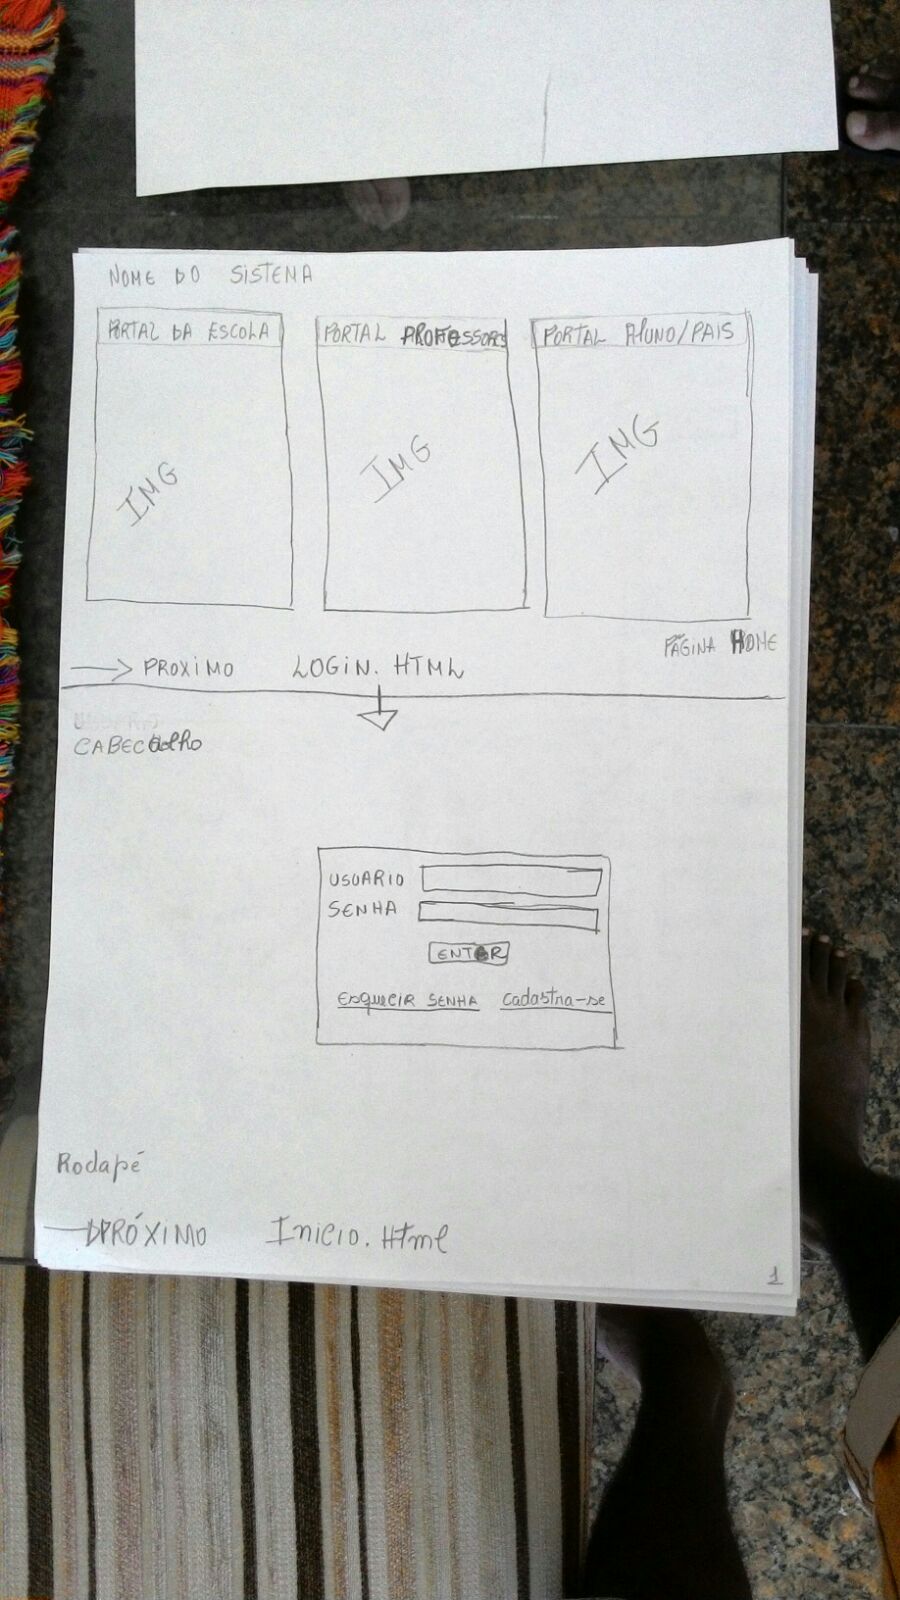 NOME DO SISTEMA
PORTAL DA ESCOLA
PORTAL PROFESSORES
PORTAL ALUNO/PAIS
IMG
IMG
IMG
PÁGINA HOME
PROXIMO LOGIN. HTML
CABECALHO
USUARIO
SENHA
ENTER
EsquecIR SENHA cadastra-se
Rodapé
PRÓXIMO Inicio. Html
1